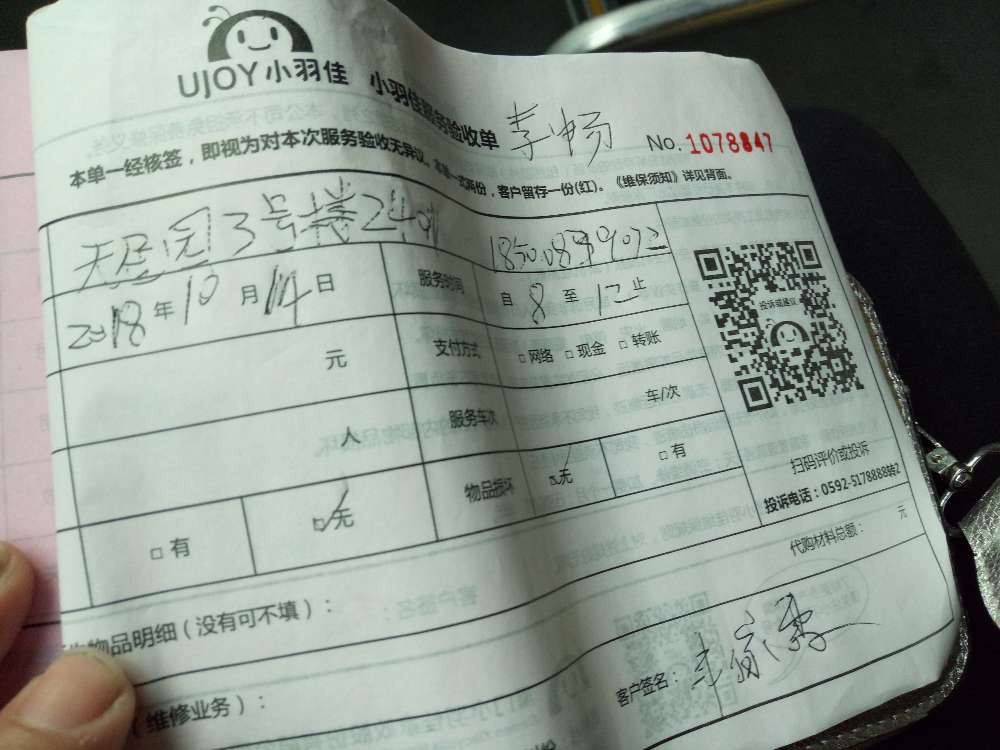 UJOY小羽佳 小羽佳服务验收单 李畅
No. 1078847
本单一经核签，即视为对本次服务验收无异议。本单一式两份，客户留存一份(红)。《维保须知》详见背面。
3号楼2401
2018年10月14日 服务时间 自8至12止
元 支付方式 □网络 □现金 □转账
投诉或建议
人 服务车次 车/次
□有 □无 物品损坏 □无 □有
扫码评价或投诉
投诉电话：0592-5178888转2
代购材料总额： 元
物品明细（没有可不填）：
客户签名：
（维修业务）：